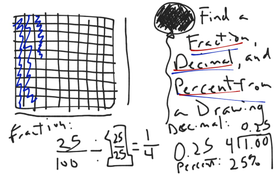 Find a
Fraction,
Decimal, and
Percent from
a Drawing
fraction:
25/100 ÷ [25/25] = 1/4
Decimal: 0.25
0.25 4⟌1.00
Percent: 25%